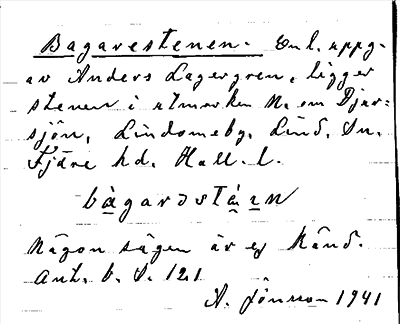 Bagarestenen. Enl. uppg.
av Anders Lagergren, ligger
stenen i utmarken N. om Djur-
sjön, Lindomeby, Lind. sn.
Fjäre hd. Hall. l.
bàgarəstẹ́ən
Någon sägen är ej känd.
Ant. b. s. 121
A. Jönsson 1941